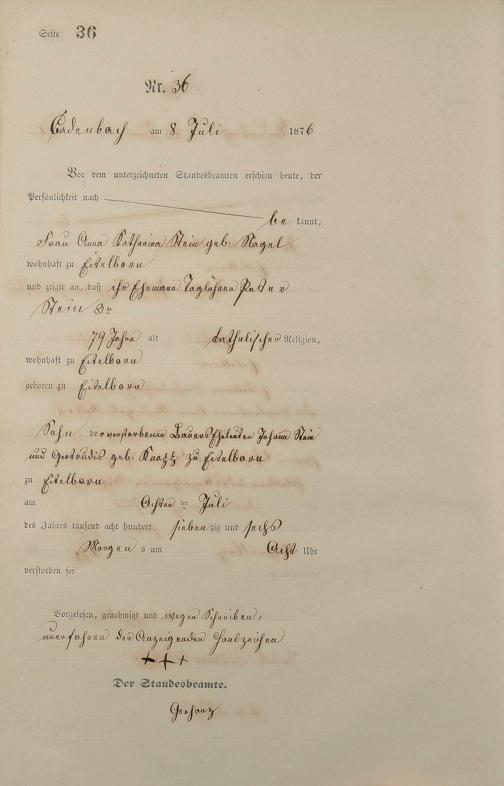 Seite 36
Nr. 36
Cadenbach am 8 Juli 1876
Vor dem unterzeichneten Standesbeamten erschien heute, der
Persönlichkeit nach
be kannt,
Frau Anna Katharina Stein geb. Nagel
wohnhaft zu Eitelborn
und zeigte an, daß ihr Ehemann Taglöhner Peter
Stein 3r
79 Jahre alt katholischer Religion,
wohnhaft zu Eitelborn
geboren zu Eitelborn
Sohn der verstorbenen Bauers Eheleuten Johann Stein
und Gertrudis geb. zu Eitelborn
zu Eitelborn
am Achten im Juli
des Jahres tausend acht hundert sieben zig und sechs
Morgen s um Acht Uhr
verstorben sei
Vorgelesen, genehmigt und wegen Schreiben,
unerfahren der Anzeigenden Handzeichen
+++
Der Standesbeamte.
Gerharz